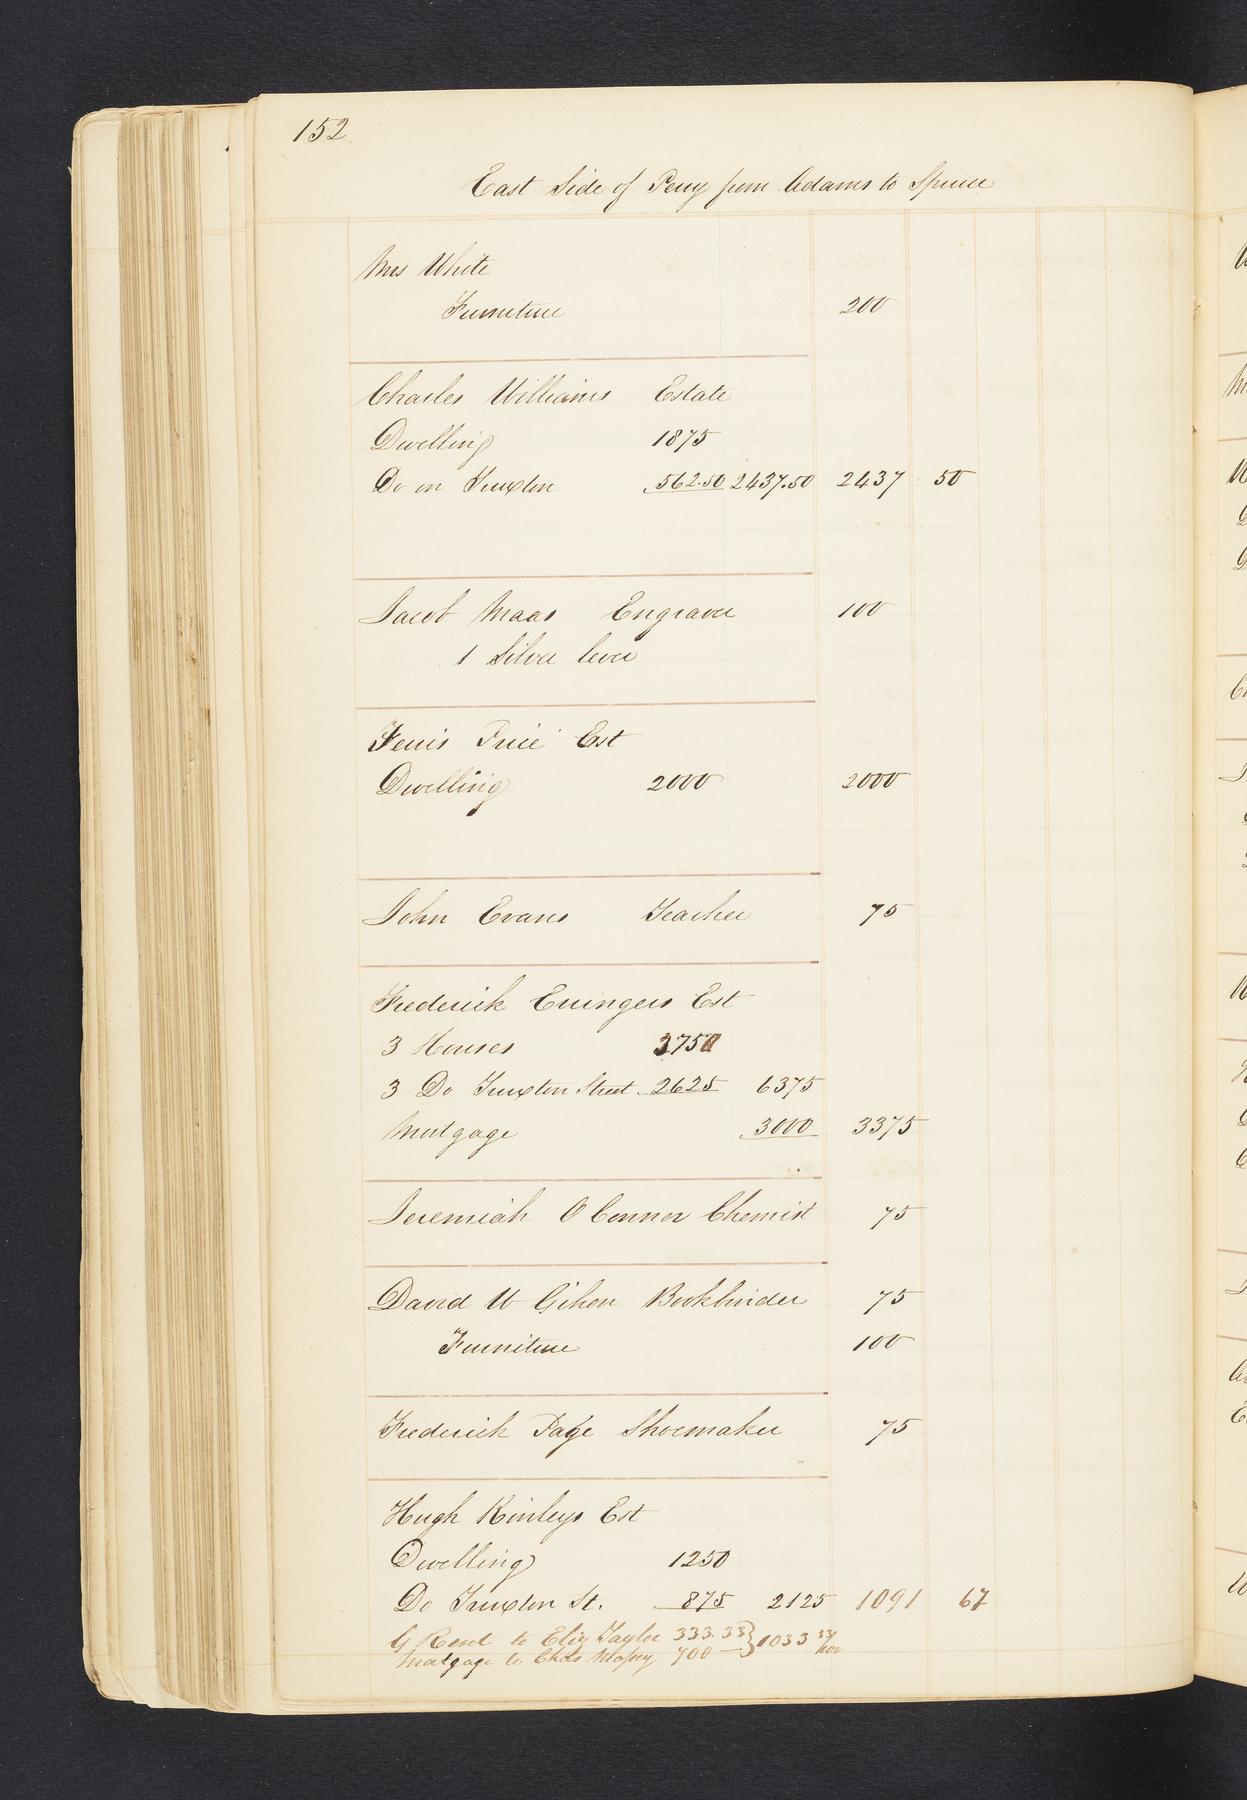 152
East Side of Perry from Adams to Spruce
Mrs White
Furniture 200
Charles Williams Estate
Dwelling 1875
Do on Truxton 562.50 2437.50 2437 50
Jacob Maas Engraver 100
1 Silver lever
Ferris Price Est
Dwelling 2000 2000
John Evans Teacher 75
Frederick Eringers Est
3 Houses 3750
3 Do Truxton Street 2625 6375
Mortgage 3000 3375
Jeremiah O Connor Chemist 75
David W Gihon Bookbinder 75
Furniture 100
Frederick Page Shoemaker 75
Hugh Kinleys Est
Dwelling 1250
Do Truxton St. 875 2125 1091 67
G Rent to Eliz Taylor 333.33 1033 33
Mortgage to Chas 700